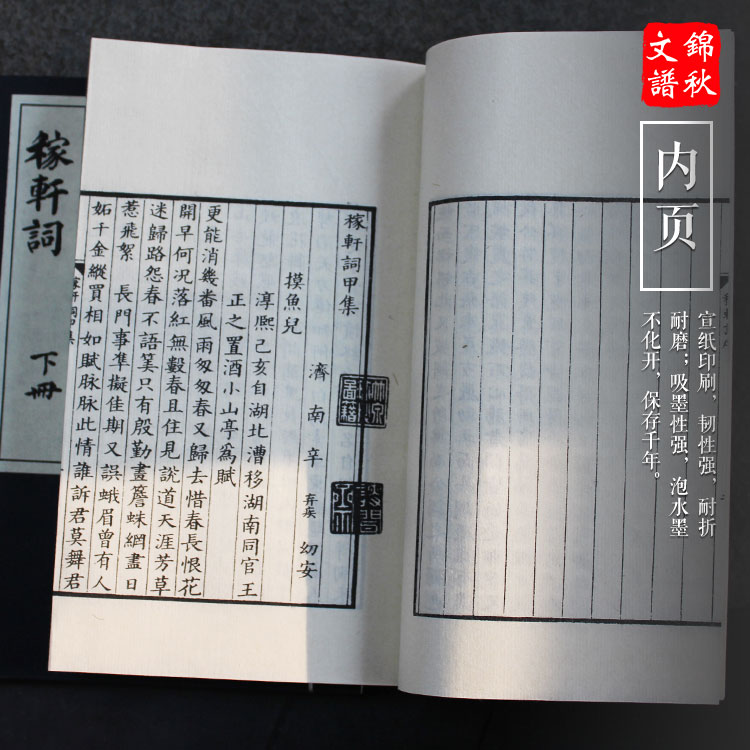 錦秋
文譜
内页
宣纸印刷，韧性强，耐折
耐磨；吸墨性强，泡水墨
不化开，保存千年。
稼軒詞甲集
濟南辛 弃疾 幼安
摸魚兒
淳熙己亥自湖北漕移湖南同官王
正之置酒小山亭為賦
更能消幾番風雨匆匆春又歸去惜春長恨花
開早何況落紅無數春且住見說道天涯芳草
迷歸路怨春不語筭只有殷勤畫簷蛛網盡日
惹飛絮 長門事準擬佳期又誤蛾眉曾有人
妬千金縱買相如賦脉脉此情誰訴君莫舞君
稼軒詞
下冊